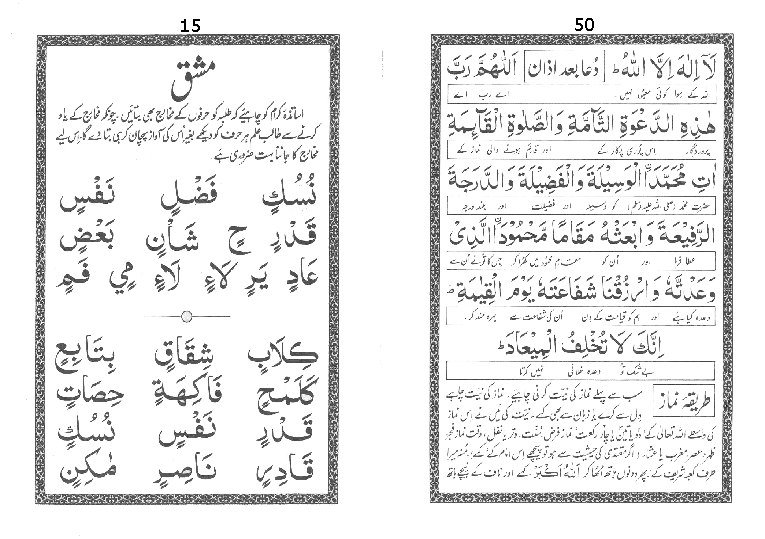 15
مشق
اساتذہ کرام کو چاہیئے کہ طلبہ کو حرفوں کے مخارج بھی بتائیں، چونکہ مخارج کے یاد
کرنے سے طالب علم ہر حرف کو دیکھے بغیر اس کی آواز پہچان کر ہی بتا دے گا، اس لیے
مخارج کا جاننا بہت ضروری ہے
نُسُكٍ فَضْلٍ نَفْسٍ
قَدْرٍ حٍ شَاْنٍ بَعْضٍ
عَادٍ يَرٍ لَاءٍ لَاءٍ مِي فَمٍ
كِلَابٍ شِقَاقٍ بِتَابِعٍ
كَلَمْحٍ فَاكِهَةٍ حِصَاتٍ
قَدْرٍ نَفْسٍ نُسُكٍ
قَادِرٍ نَاصِرٍ مٰكِنٍ
50
لَآ اِلٰهَ اِلَّا اللهُ ط دُعا بعد اذان اَللّٰهُمَّ رَبَّ
کے سوا کوئی نہیں اے رب
هٰذِهِ الدَّعْوَةِ التَّآمَّةِ وَالصَّلٰوةِ الْقَآئِمَةِ
پروردگار اس پوری پکار کے اور قائم ہونے والی نماز کے
اٰتِ مُحَمَّدَاۨ الْوَسِيْلَةَ وَالْفَضِيْلَةَ وَالدَّرَجَةَ
حضرت محمد کو وسیلہ اور فضیلت اور بلند درجہ
الرَّفِيْعَةَ وَابْعَثْهُ مَقَامًا مَّحْمُوْدَاۨ الَّذِیْ
عطا فرما اور اُن کو مقام محمود میں کھڑا کر جس کا تُو نے اُن سے
وَعَدْتَّهٗ وَارْزُقْنَا شَفَاعَتَهٗ يَوْمَ الْقِيٰمَةِ ط
وعدہ کیا ہے اور ہم کو قیامت کے دن اُن کی شفاعت سے بہرہ مند کر،
اِنَّكَ لَا تُخْلِفُ الْمِيْعَادَ ط
بے شک تُو وعدہ خلافی نہیں کرتا
طریقۂ نماز سب سے پہلے نماز کی نیت کرنی چاہیے، نماز کی نیت چاہے
دل سے کرے یا زبان سے بھی کہے۔ نیت کی میں نے اس نماز
کی واسطے اللہ تعالیٰ کے دو یا تین یا چار رکعت نماز فرض، سنت، وتر یا نفل، وقت نماز فجر
ظہر، عصر، مغرب یا عشاء، اگر مقتدی کی حیثیت سے ہو تو پیچھے اس امام کے کہے، منہ میرا
طرف کعبہ شریف کے، پھر دونوں ہاتھ اٹھا کر اَللهُ اَكْبَرُ کہے اور ناف کے نیچے ہاتھ